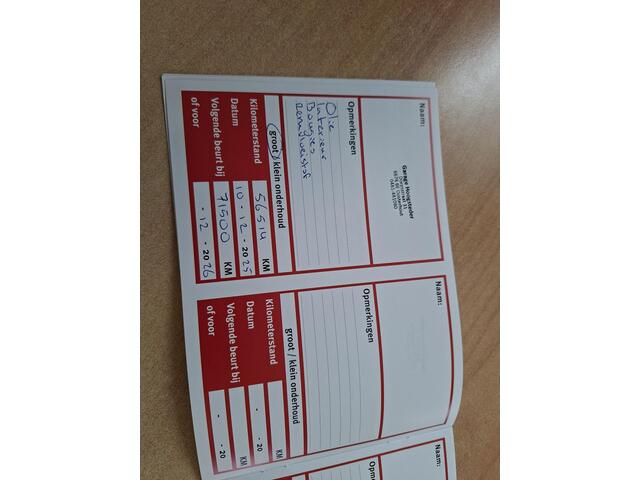 Naam:
Garage Hoogstander
6678 BE Oosterhout
0481-481080
Opmerkingen
Olie
Interieur
Bougies
Remvloeistof
groot / klein onderhoud
Kilometerstand 56514 KM
Datum 10 - 12 - 20 25
Volgende beurt bij 71500 KM
of voor - 12 - 20 26
Naam:
Opmerkingen
groot / klein onderhoud
Kilometerstand KM
Datum - - 20
Volgende beurt bij KM
of voor - - 20
Naam:
Opmerkingen